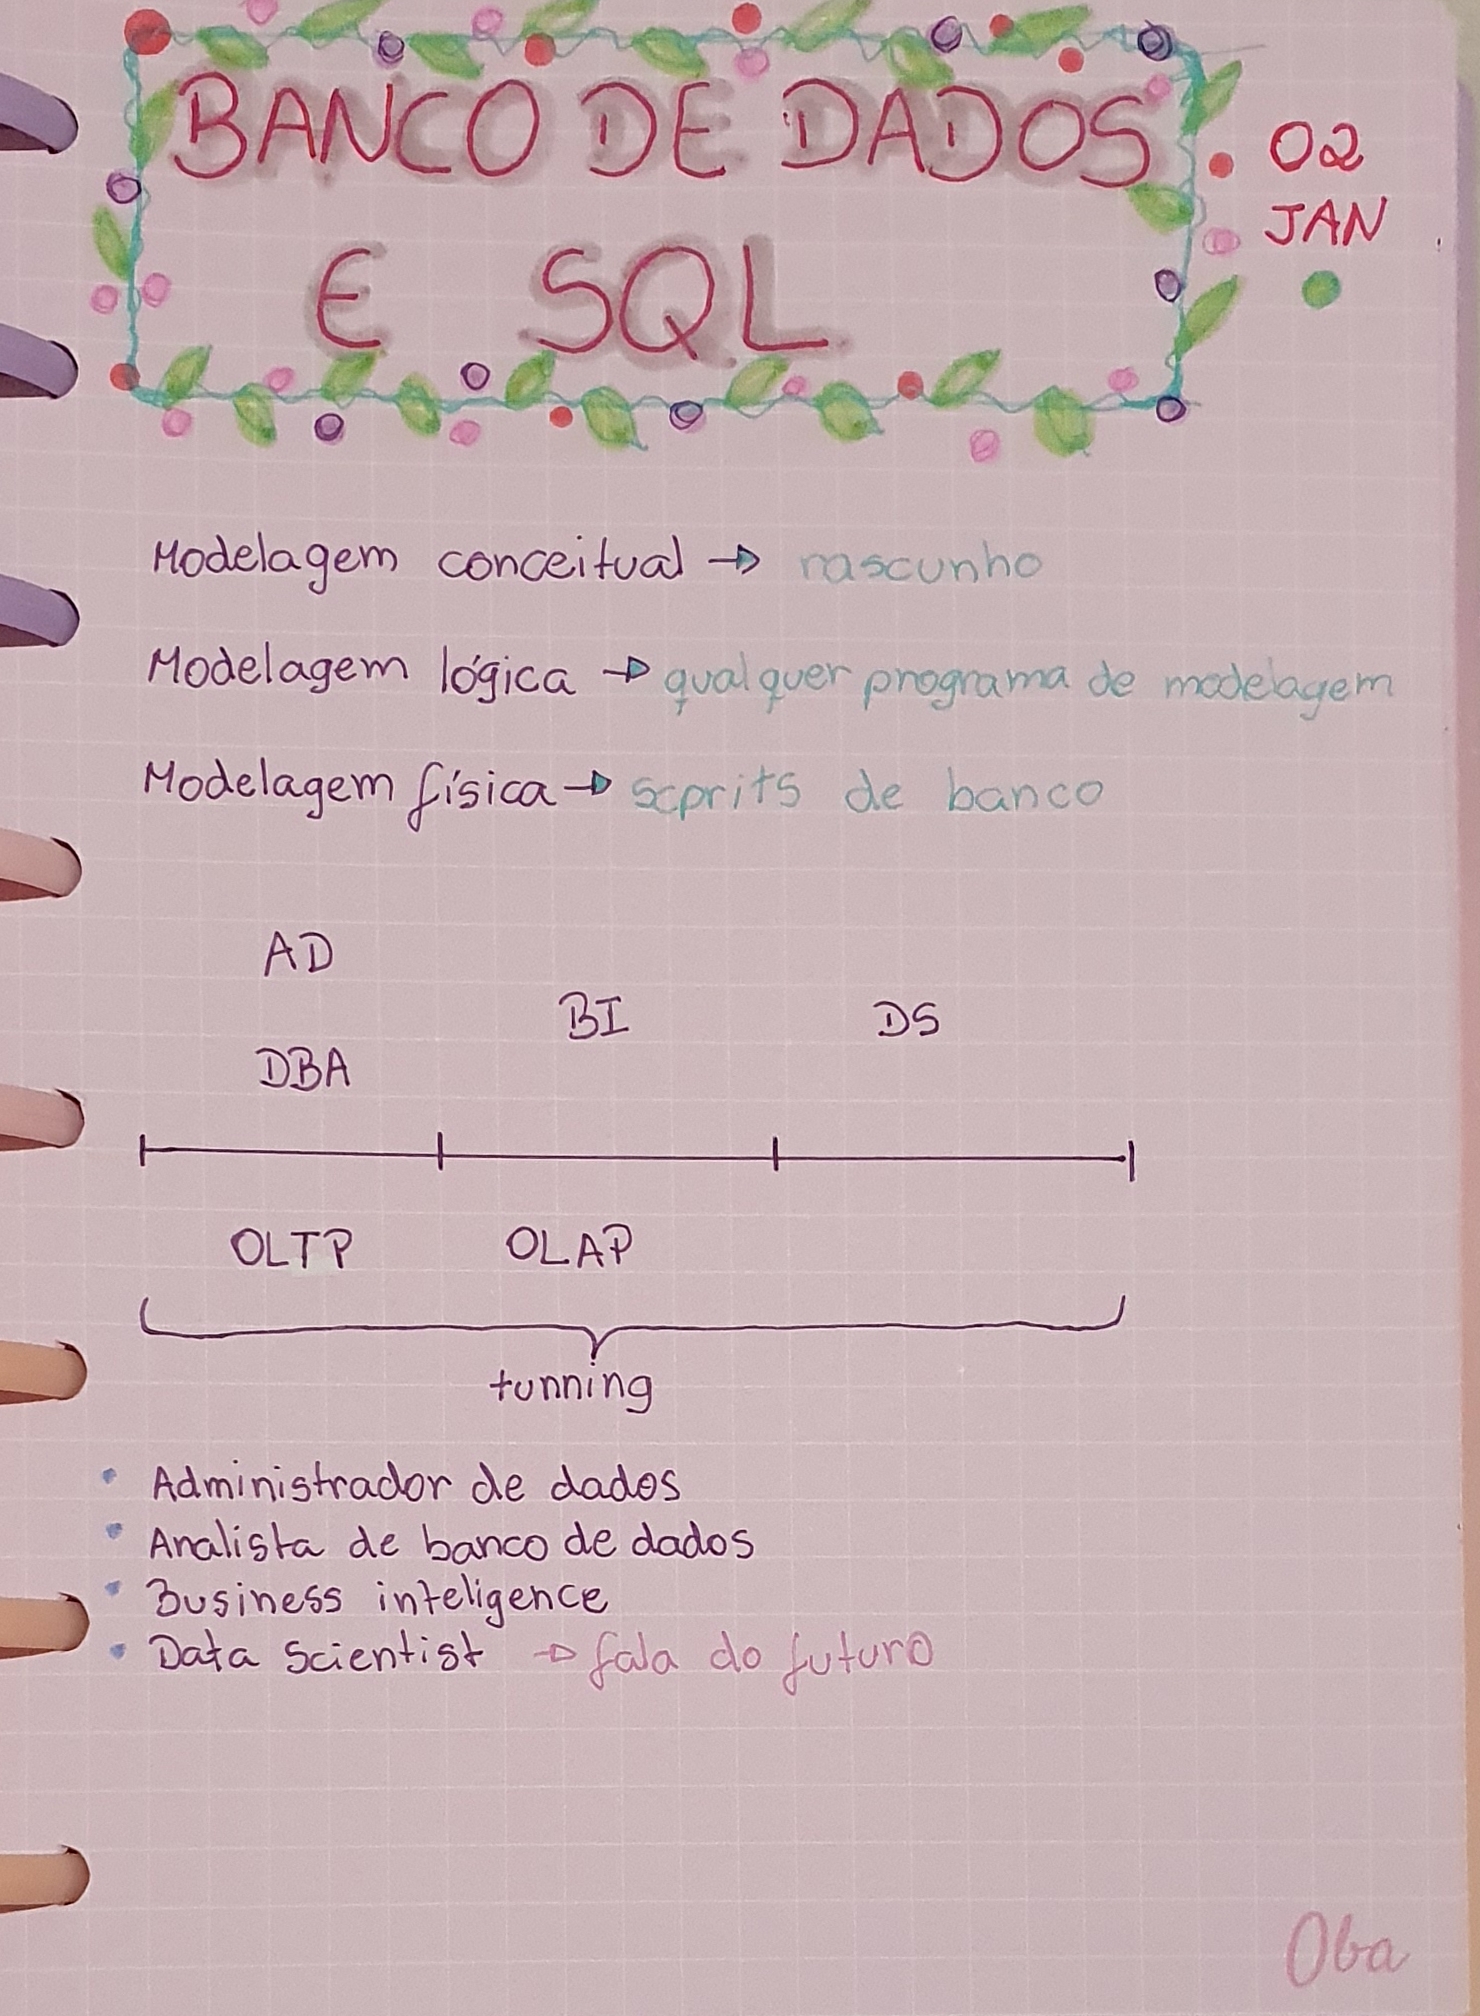 BANCO DE DADOS
E SQL
02
JAN
Modelagem conceitual → rascunho
Modelagem lógica → qualquer programa de modelagem
Modelagem física → scprits de banco
AD
BI
DS
DBA
OLTP
OLAP
tunning
• Administrador de dados
• Analista de banco de dados
• Business inteligence
• Data Scientist → fala do futuro
Oba